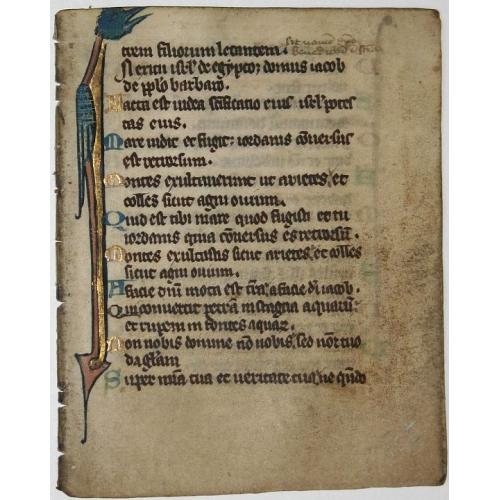 trem filiorum letantem.
N exitu isrl' de egypto: domus iacob
de pplo barbaro.
Facta est iudea scificatio eius isrl' potes
tas eius.
Mare uidit et fugit: iordanis conuersus
est retrorsum.
Montes exultauerunt ut arietes, et
colles sicut agni ouium.
Quid est tibi mare quod fugisti et tu
iordanis quia conuersus es retrorsum.
Montes exultastis sicut arietes, et colles
sicut agni ouium.
A facie dni mota est tra, a facie di iacob.
Qui conuertit petram in stagna aquarum:
et rupem in fontes aquar.
Non nobis domine no nobis, sed noi tuo
da glam
Super mia tua et ueritate tua, ne qndo